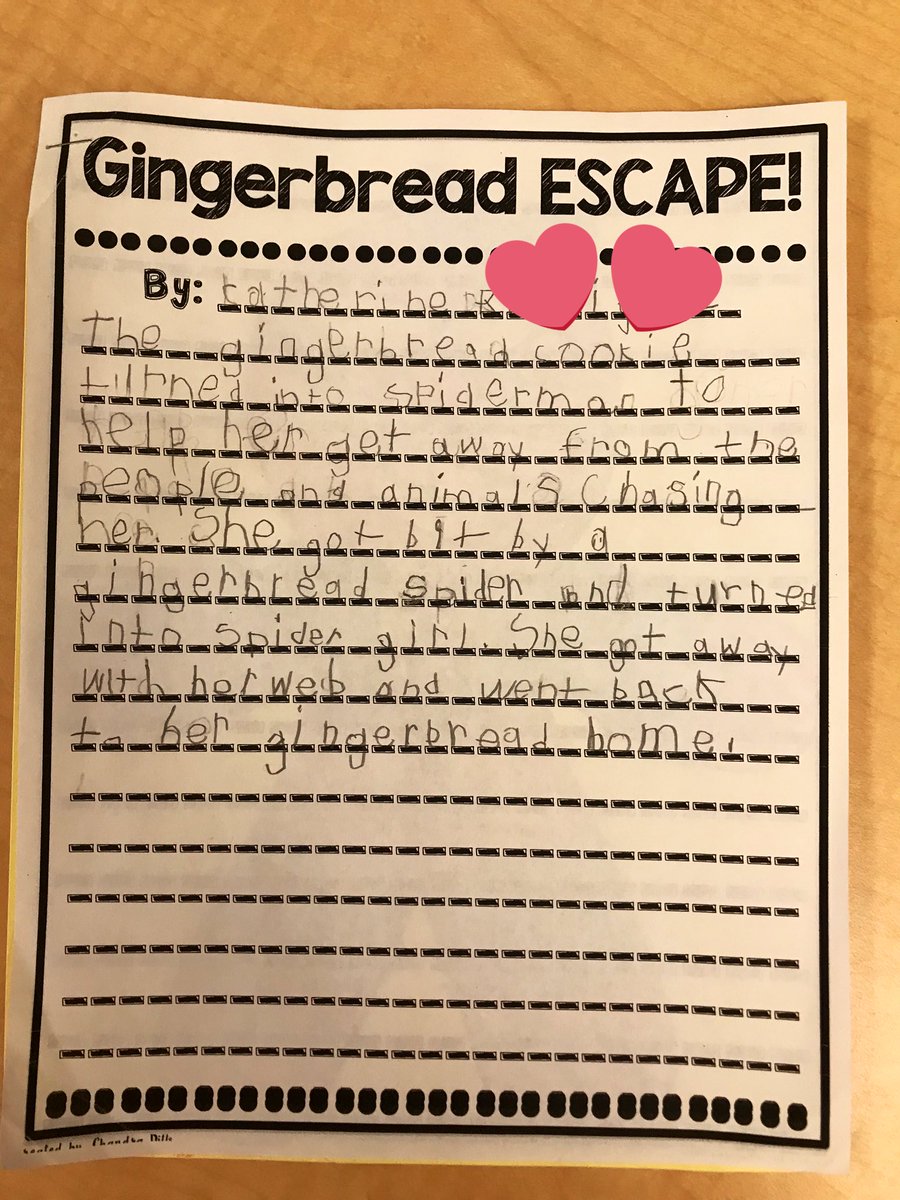 Gingerbread ESCAPE!
By: Katherine
The gingerbread cookie
turned into spiderman to
help her get away from the
people and animals Chasing
her. She got bit by a
gingerbread spider and turned
into spider girl. She got away
with her web and went back
to her gingerbread home.
Created by Chandra Dills